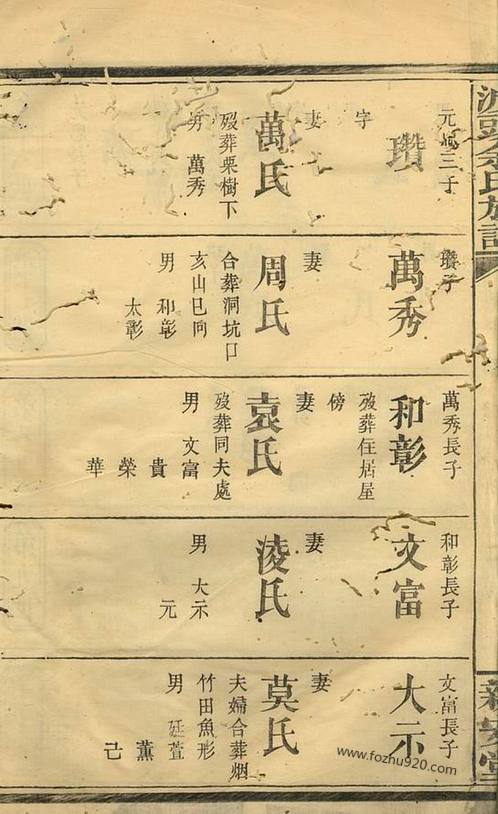 元三子
瓚
字
妻
萬氏
歿葬栗樹下
男 萬秀
瓚子
萬秀
妻
周氏
合葬洞坑口
亥山巳向
男 和彰
太彰
萬秀長子
和彰
歿葬住居屋
傍
妻
袁氏
歿葬同夫處
男 文富
貴
榮
華
和彰長子
文富
妻
淩氏
男 大示
元
文富長子
大示
妻
莫氏
夫婦合葬烟
竹田魚形
男 廷萱
薫
己
氏族譜
新安堂
www.fozhu920.com